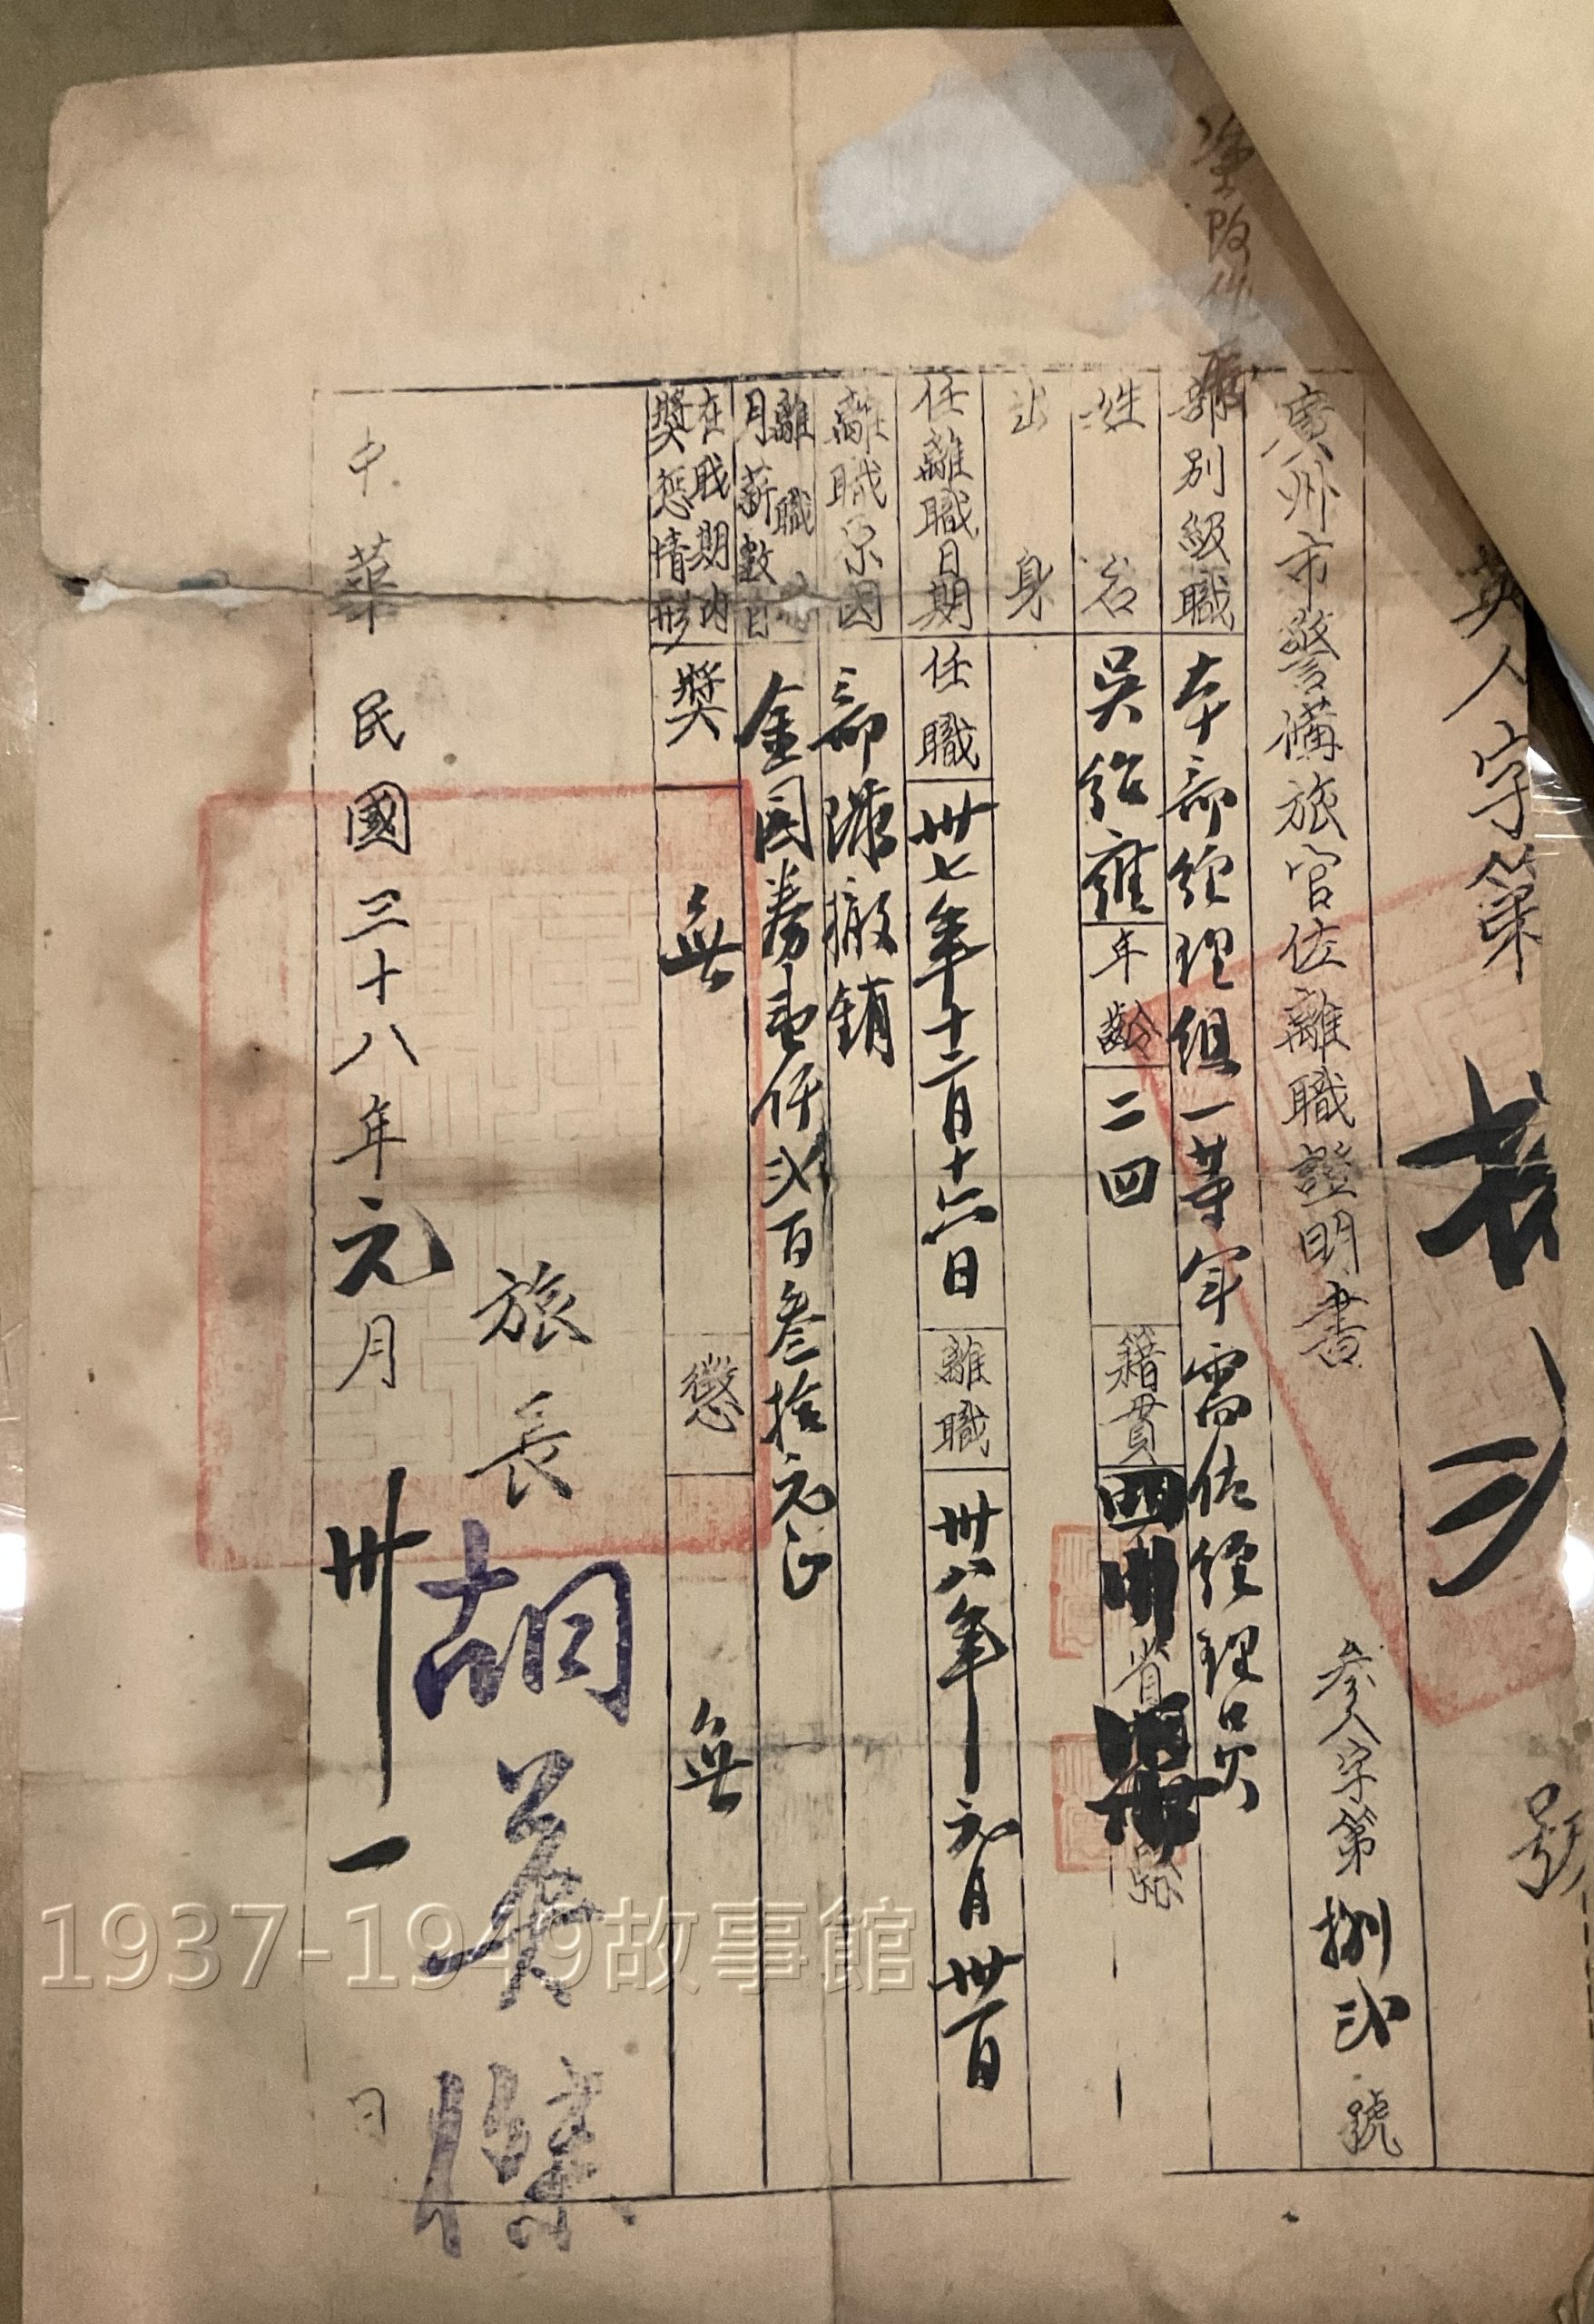 英人字第
號
廣州市警備旅官佐離職證明書
參人字第捌弍號
部別級職
本部經理組一等軍需佐經理員
姓名
吳紹雍
年齡
二四
籍貫
省
縣
出身
任離職日期
任職
卅七年十二月十六日
離職
卅八年元月卅一日
離職原因
部隊撤銷
離職
月薪數目
金圓券壹仟弍百叁拾元正
在職期內
獎懲情形
獎
無
懲
無
旅長
胡英傑
中華民國三十八年元月卅一日
1937-1949故事館